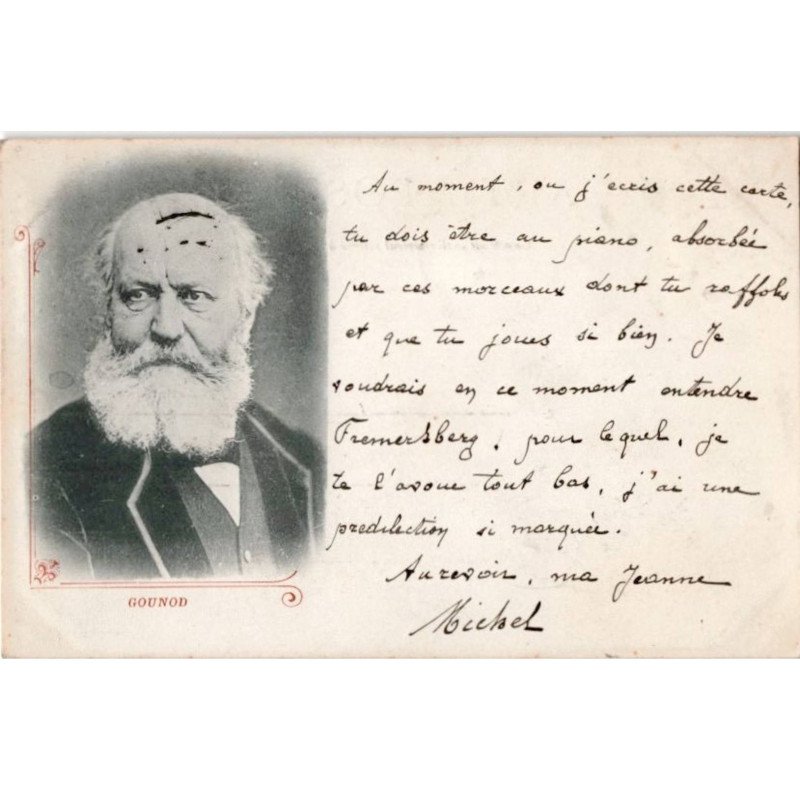 Au moment, ou j'ecris cette carte,
tu dois être au piano, absorbée
par ces morceaux dont tu raffoles
et que tu joues si bien. Je
voudrais en ce moment entendre
Fremersberg, pour lequel, je
te l'avoue tout bas, j'ai une
predilection si marquée.
Aurevoir, ma Jeanne
Michel
GOUNOD